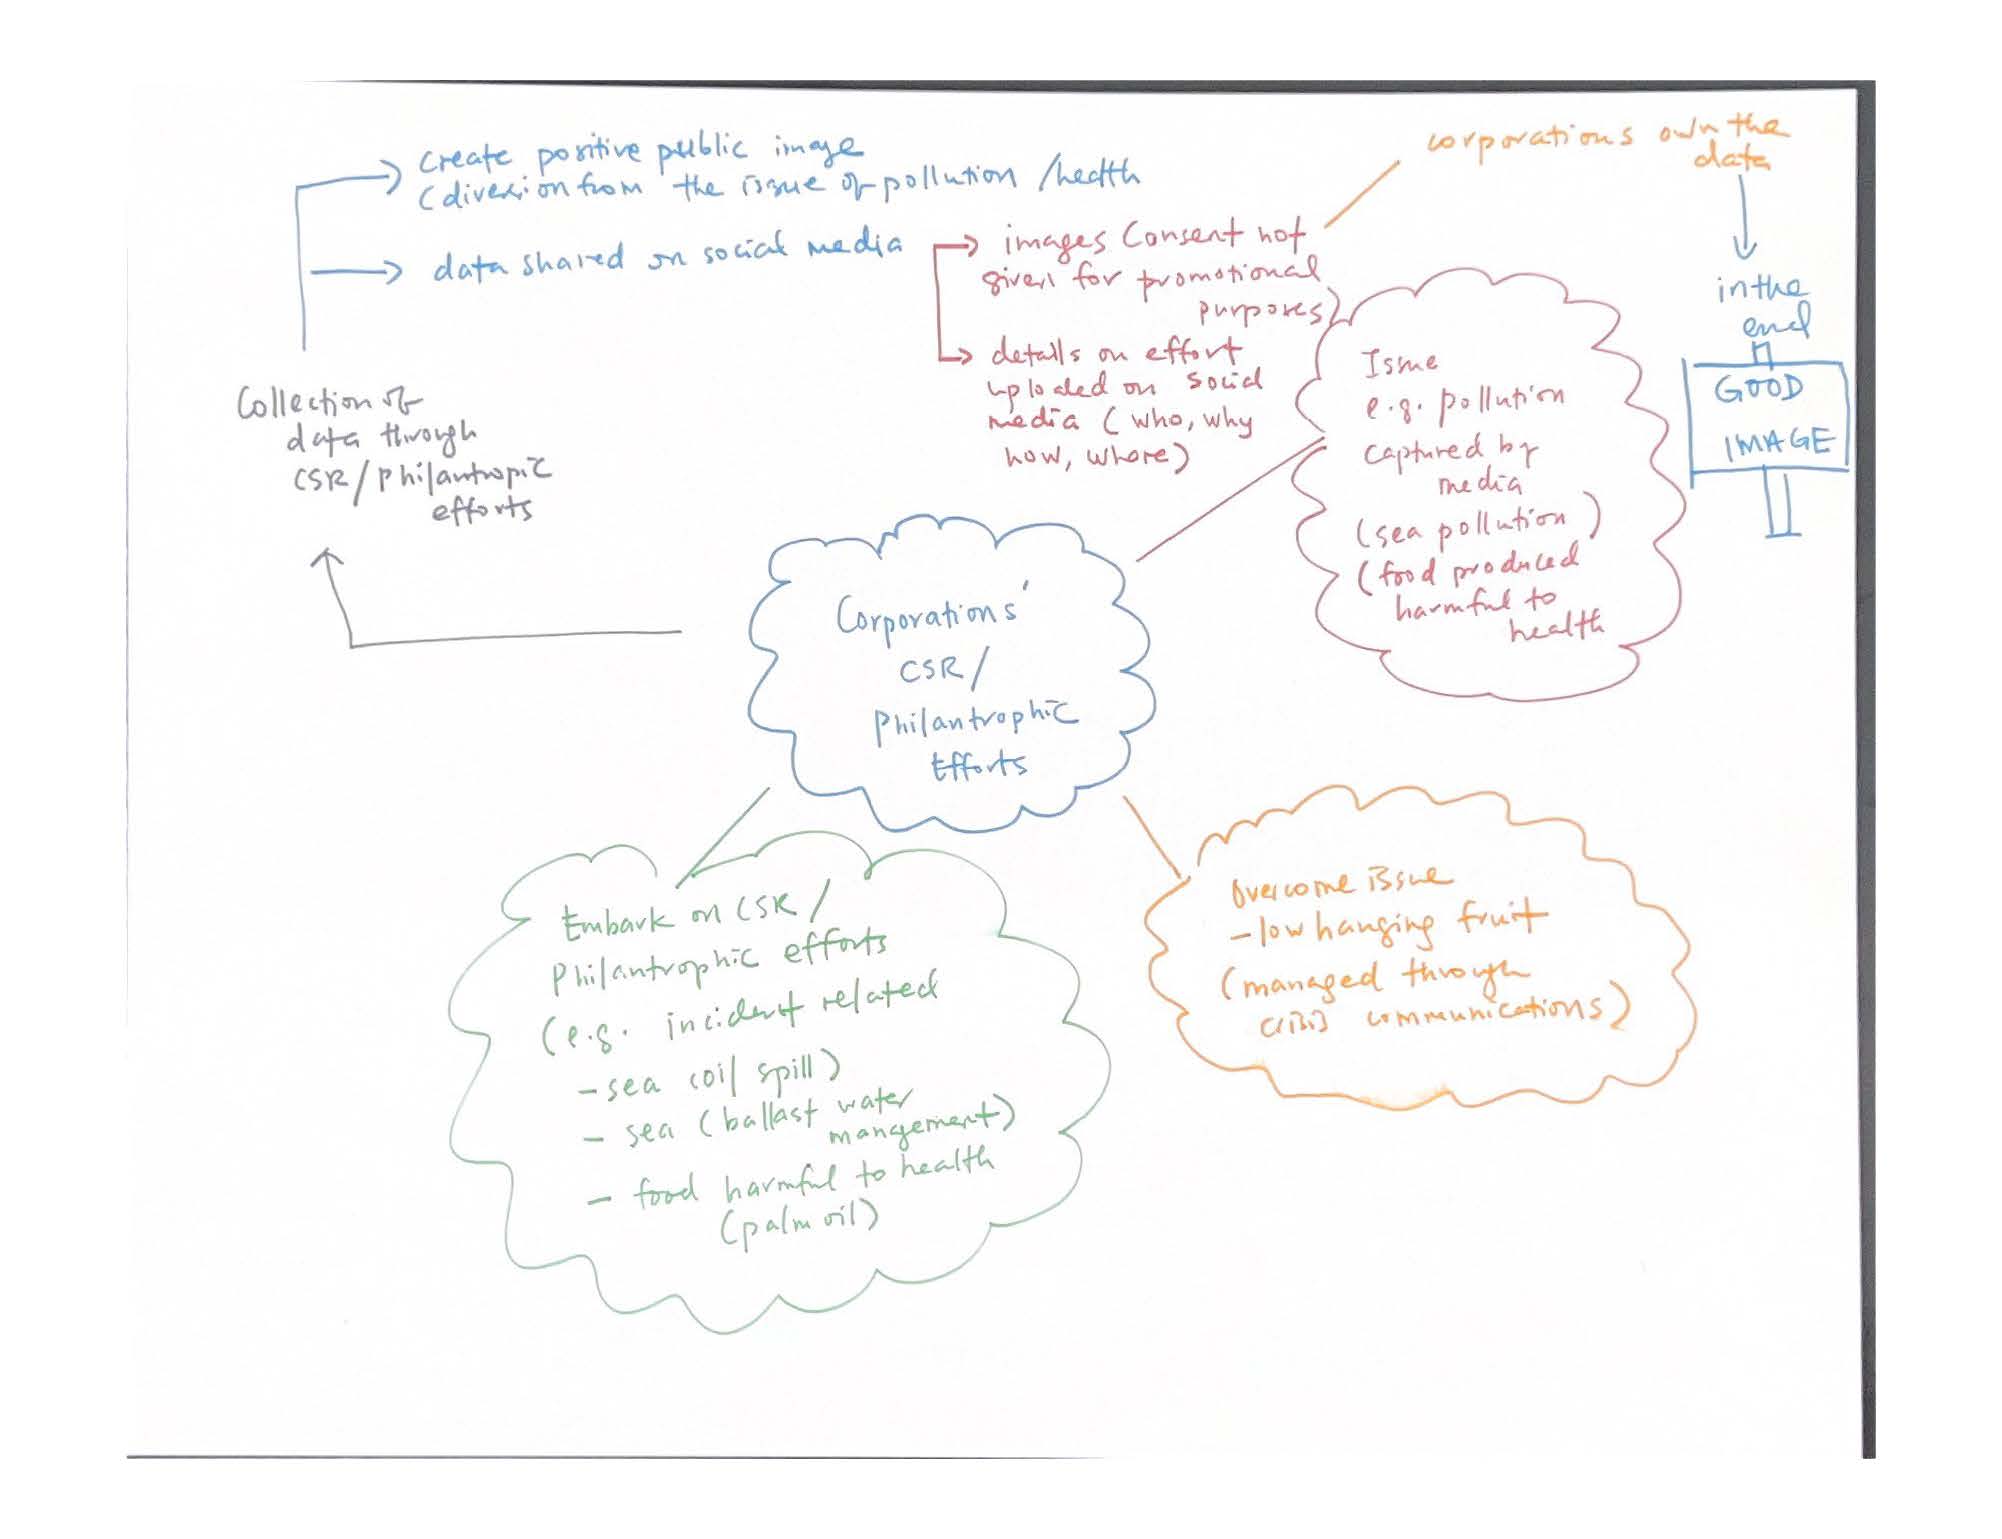 create positive public image
(diversion from the issue of pollution /health
data shared on social media
images Consent not
given for promotional
purposes)
details on effort
uploaded on social
media (who, why
how, where)
corporations own the
data
in the
end
GOOD
IMAGE
Collection of
data through
CSR/Philantropic
efforts
Issue
e.g. pollution
captured by
media
(sea pollution)
(food produced
harmful to
health
Corporations'
CSR/
Philantrophic
Efforts
Embark on CSR/
Philantrophic efforts
(e.g. incident related
- sea coil spill)
- sea (ballast water
mangement)
- food harmful to health
(palm oil)
Overcome issue
- low hanging fruit
(managed through
communications)